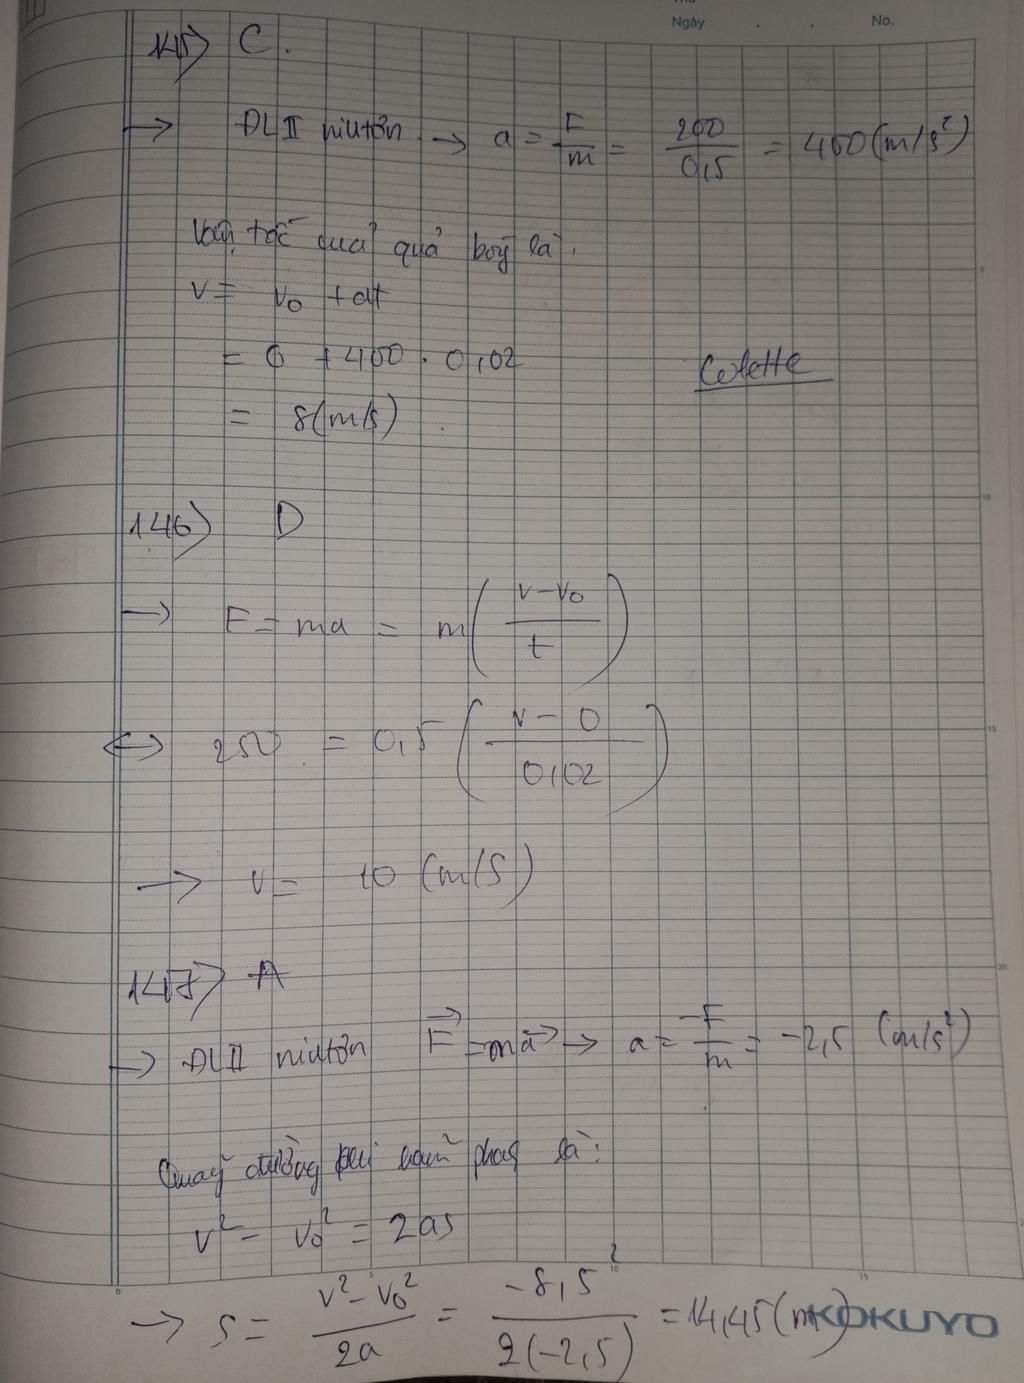 Ngày . . No.
145) C.
→ ĐL II niutơn → a = F/m = 200/0,5 = 400 (m/s²)
Vận tốc quả bóng là:
v = v₀ + at
= 0 + 400 . 0,02
Colette
= 8 (m/s)
146) D
→ F = ma = m((v - v₀)/t)
↔ 250 = 0,5((v - 0)/0,02)
→ v = 10 (m/s)
147) A
→ ĐL II niutơn F⃗ = ma⃗ → a = -F/m = -2,5 (m/s²)
Quãng đường khi hãm phanh là:
v² - v₀² = 2as
→ s = (v² - v₀²)/2a = -8,5²/2(-2,5) = 14,45 (m)
KOKUYO